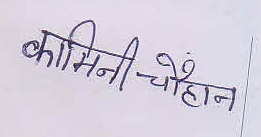 कामिनी चौहान